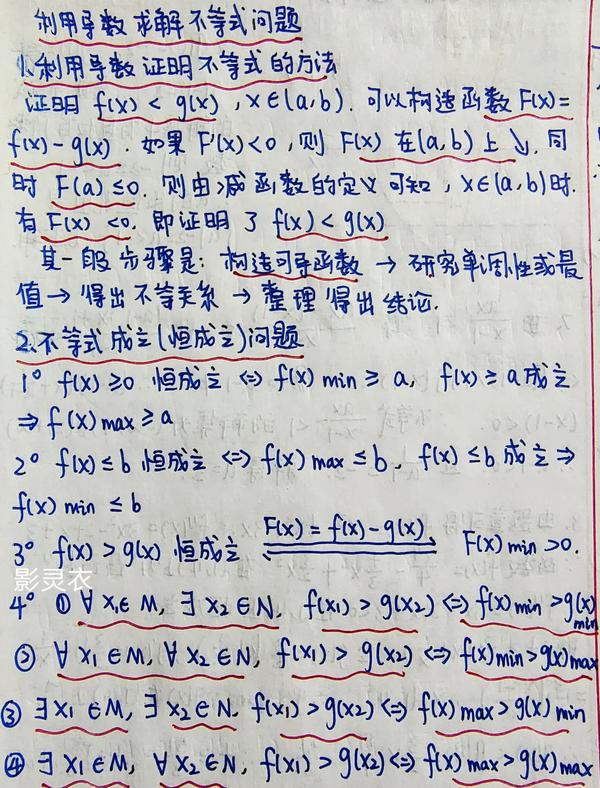 利用导数求解不等式问题
1.利用导数证明不等式的方法
证明 f(x) < g(x), x∈(a,b). 可以构造函数 F(x)=
f(x)-g(x). 如果 F'(x)<0, 则 F(x) 在(a,b)上↘. 同
时 F(a)≤0. 则由减函数的定义可知, x∈(a,b)时.
有 F(x) <0. 即证明了 f(x)<g(x)
其一般步骤是: 构造可导函数 → 研究单调性或最
值 → 得出不等关系 → 整理得出结论.
2.不等式成立(恒成立)问题
1° f(x)≥0 恒成立 <=> f(x) min ≥ a, f(x) ≥ a 成立
⇒ f(x) max ≥ a
2° f(x) ≤ b 恒成立 <=> f(x) max ≤ b, f(x) ≤ b 成立 ⇒
f(x) min ≤ b
3° f(x) > g(x) 恒成立 F(x) = f(x)-g(x). F(x) min >0.
影灵衣
4° ① ∀ x1∈ M, ∃ x2∈ N, f(x1) > g(x2) <=> f(x) min > g(x) min
② ∀ x1 ∈M, ∀ x2∈N, f(x1) > g(x2) <=> f(x) min > g(x) max
③ ∃ x1 ∈M, ∃ x2∈N. f(x1) > g(x2) <=> f(x) max > g(x) min
④ ∃ x1 ∈M, ∀ x2∈N, f(x1) > g(x2) <=> f(x) max > g(x) max